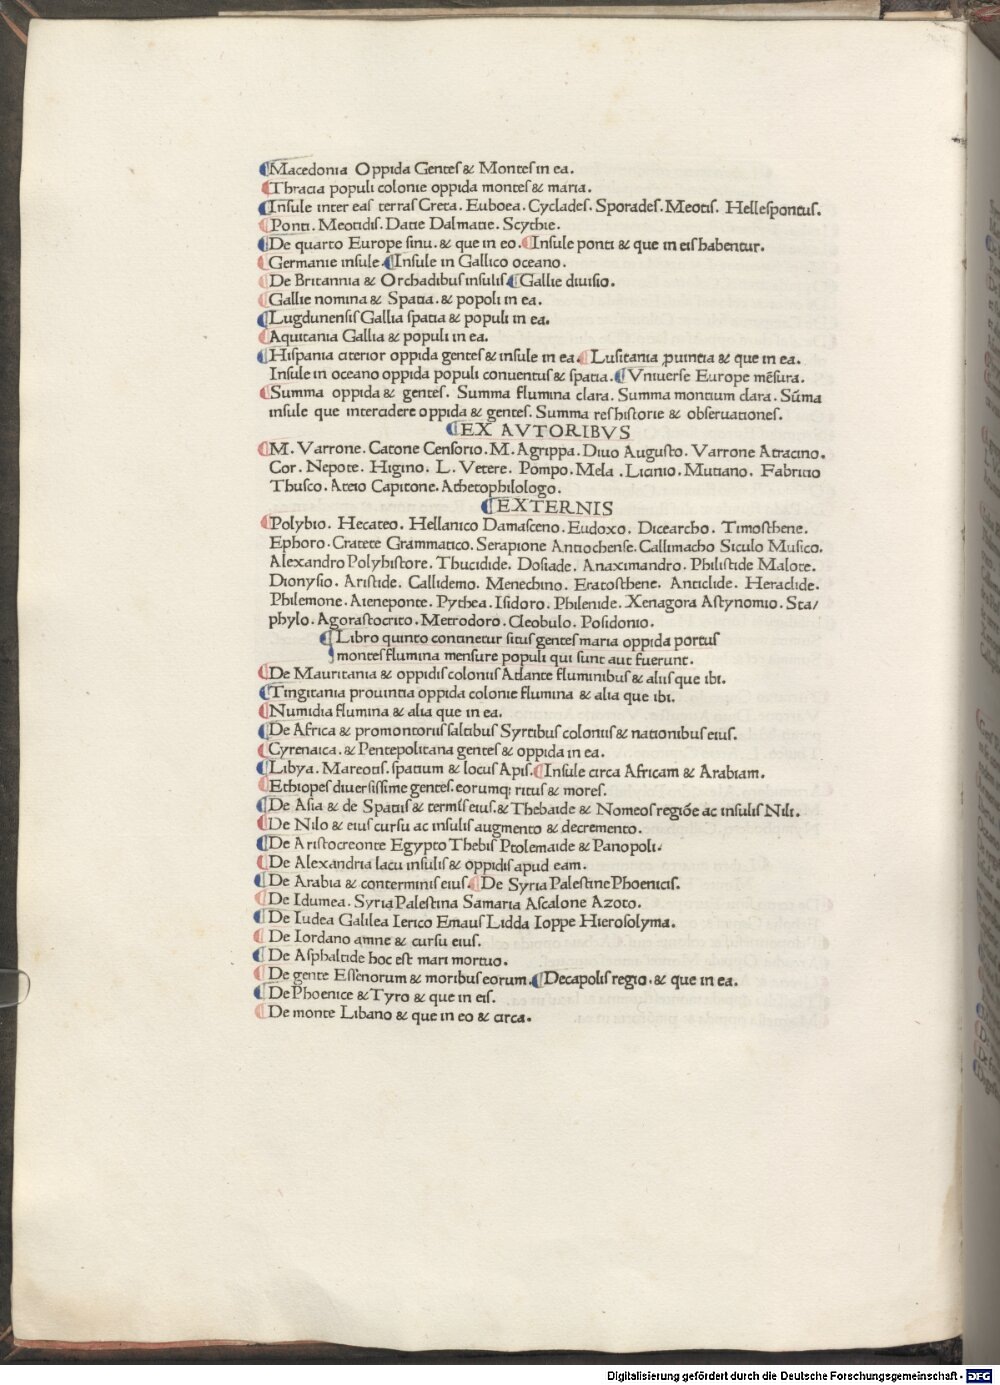 Macedonia Oppida Gentes & Montes in ea.
Thracia populi colonie oppida montes & maria.
Insule inter eas terras Creta. Euboea. Cyclades. Sporades. Meotis. Hellespontus.
Ponti. Meotidis. Datie Dalmatie. Scythie.
De quarto Europe sinu. & que in eo. Insule ponti & que in eis habentur.
Germanie insule. Insule in Gallico oceano.
De Britannia & Orchadibus insulis Gallie diuisio.
Gallie nomina & Spatia. & popoli in ea.
Lugdunensis Gallia spatia & populi in ea.
Aquitania Gallia & populi in ea.
Hispania citerior oppida gentes & insule in ea. Lusitania ꝓuintia & que in ea.
Insule in oceano oppida populi conuentus & spatia. Vniuerse Europe mēsura.
Summa oppida & gentes. Summa flumina clara. Summa montium clara. Sūma
insule que intercidere oppida & gentes. Summa res historie & obseruationes.
EX AVTORIBVS
M. Varrone. Catone Censorio. M. Agrippa. Diuo Augusto. Varrone Atracino.
Cor. Nepote. Higino. L. Vetere. Pompo. Mela. Licinio. Mutiano. Fabritio
Thusco. Ateio Capitone. Athetophilologo.
EXTERNIS
Polybio. Hecateo. Hellanico Damasceno. Eudoxo. Dicearcho. Timosthene.
Ephoro. Cratete Grammatico. Serapione Antiochense. Callimacho Siculo Musico.
Alexandro Polyhistore. Thucidide. Dosiade. Anaximandro. Philistide Malote.
Dionysio. Aristide. Callidemo. Menechino. Eratosthene. Anticlide. Heraclide.
Philemone. Ateneponte. Pythea. Isidoro. Philenide. Xenagora Astynomio. Sta/
phylo. Agorastocrito. Metrodoro. Cleobulo. Posidonio.
Libro quinto continetur situs gentes maria oppida portus
montes flumina mensure populi qui sunt aut fuerunt.
De Mauritania & oppidis coloniis Atlante fluminibus & aliis que ibi.
Tingitania prouintia oppida colonie flumina & alia que ibi.
Numidia flumina & alia que in ea.
De Africa & promontoriis saltibus Syrtibus coloniis & nationibus eius.
Cyrenaica. & Pentepolitana gentes & oppida in ea.
Libya. Mareotis. spatium & locus Apis. Insule circa Africam & Arabiam.
Ethiopes diuersissime gentes. eorumq; ritus & mores.
De Asia & de Spatiis & termīs eius. & Thebaide & Nomeos regiōe ac insulis Nili.
De Nilo & eius cursu ac insulis augmento & decremento.
De Aristocreonte Egypto Thebis Ptolemaide & Panopoli.
De Alexandria lacu insulis & oppidis apud eam.
De Arabia & conterminis eius. De Syria Palestine Phoenicis.
De Idumea. Syria Palestina Samaria Ascalone Azoto.
De Iudea Galilea Ierico Emaus Lidda Ioppe Hierosolyma.
De Iordano amne & cursu eius.
De Asphaltide hoc est mari mortuo.
De gente Essenorum & moribus eorum. Decapolis regio. & que in ea.
De Phoenice & Tyro & que in eis.
De monte Libano & que in eo & circa.
Digitalisierung gefördert durch die Deutsche Forschungsgemeinschaft - DFG